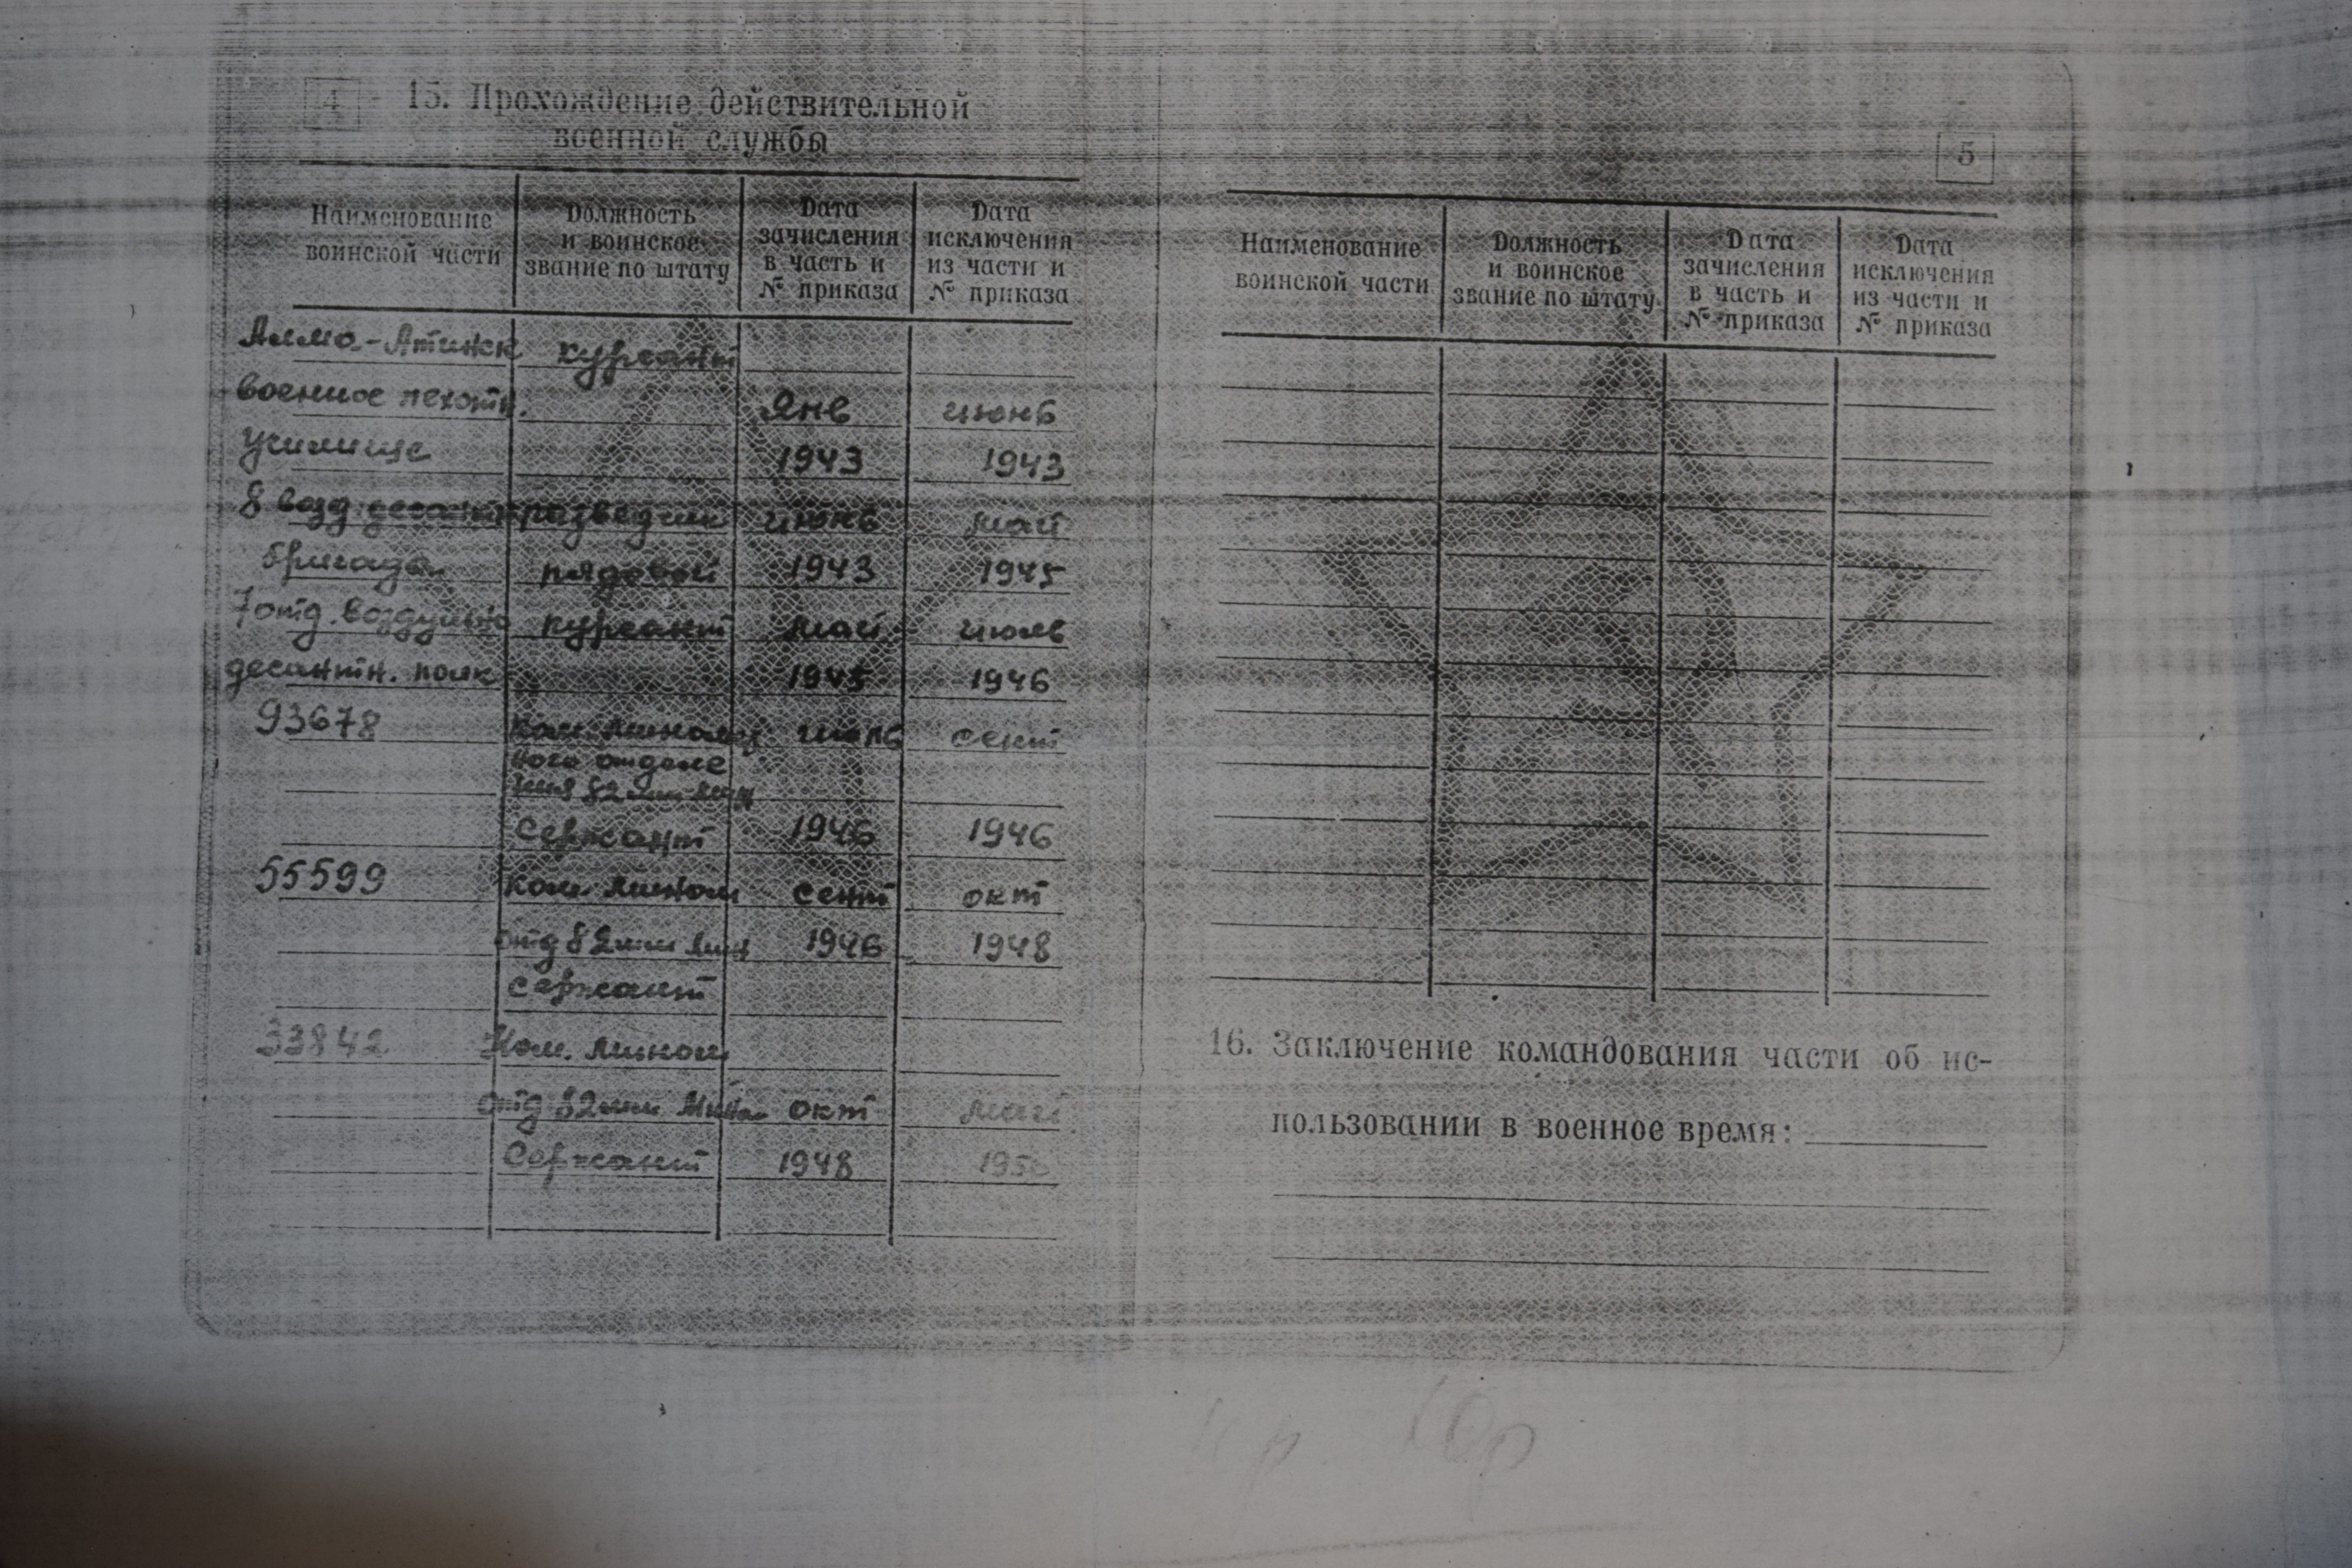 4
15. Прохождение действительной
военной службы
Наименование
воинской части
Должность
и воинское
звание по штату
Дата
зачисления
в часть и
№ приказа
Дата
исключения
из части и
№ приказа
Алма-Атинск курсант
военное пехотн. Янв июнь
училище 1943 1943
8 возд. десантн разведчик июнь май
бригада рядовой 1943 1945
7 отд. воздушно курсант май июль
десантн. полк 1945 1946
93678 ком. миномет июль сент
ного отделе
ния 82 мм мин
Сержант 1946 1946
55599 ком. мином сент окт
отд 82 мм мин 1946 1948
Сержант
33842 Ком. мином
отд 82 мм Мином окт май
Сержант 1948 1950
5
Наименование
воинской части
Должность
и воинское
звание по штату
Дата
зачисления
в часть и
№ приказа
Дата
исключения
из части и
№ приказа
16. Заключение командования части об ис-
пользовании в военное время: